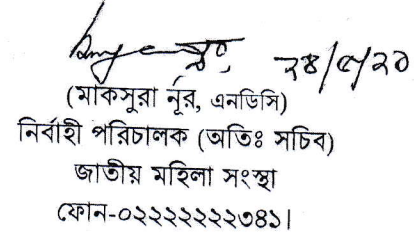 (মাকসুরা নূর, এনডিসি)
নির্বাহী পরিচালক (অতিঃ সচিব)
জাতীয় মহিলা সংস্থা
ফোন-০২২২২২২২৩৪১।